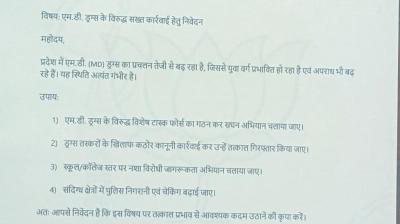 विषय: एम.डी. ड्रग्स के विरुद्ध सख्त कार्रवाई हेतु निवेदन
महोदय,
प्रदेश में एम.डी. (MD) ड्रग्स का प्रचलन तेजी से बढ़ रहा है, जिससे युवा वर्ग प्रभावित हो रहा है एवं अपराध भी बढ़
रहे हैं। यह स्थिति अत्यंत गंभीर है।
उपाय:
1) एम.डी. ड्रग्स के विरुद्ध विशेष टास्क फोर्स का गठन कर सघन अभियान चलाया जाए।
2) ड्रग्स तस्करों के खिलाफ कठोर कानूनी कार्रवाई कर उन्हें तत्काल गिरफ्तार किया जाए।
3) स्कूल/कॉलेज स्तर पर नशा विरोधी जागरूकता अभियान चलाया जाए।
4) संदिग्ध क्षेत्रों में पुलिस निगरानी एवं चेकिंग बढ़ाई जाए।
अतः आपसे निवेदन है कि इस विषय पर तत्काल प्रभाव से आवश्यक कदम उठाने की कृपा करें।